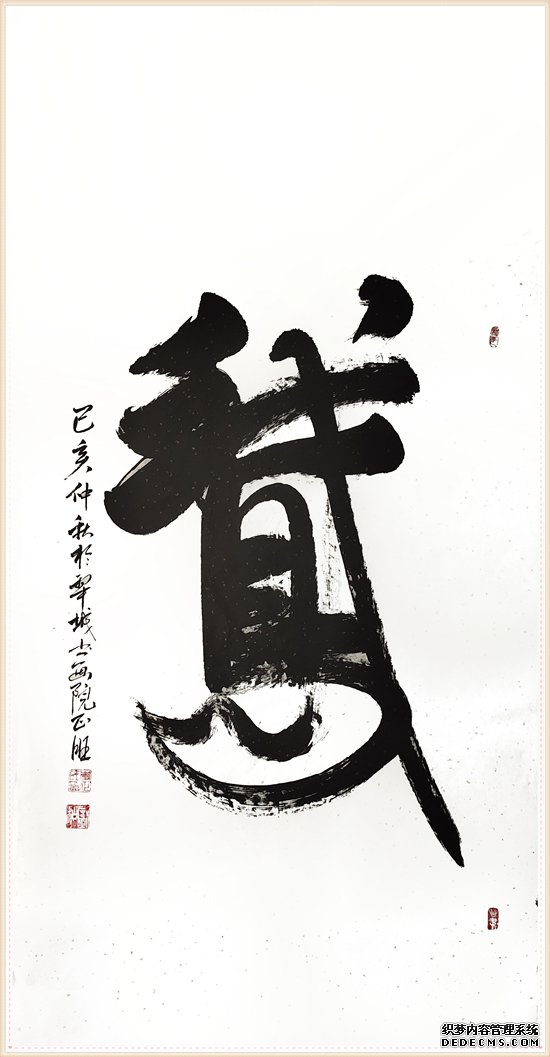 鵞
己亥仲秋於犁城书画院正旺
织梦内容管理系统
DEDECMS.COM